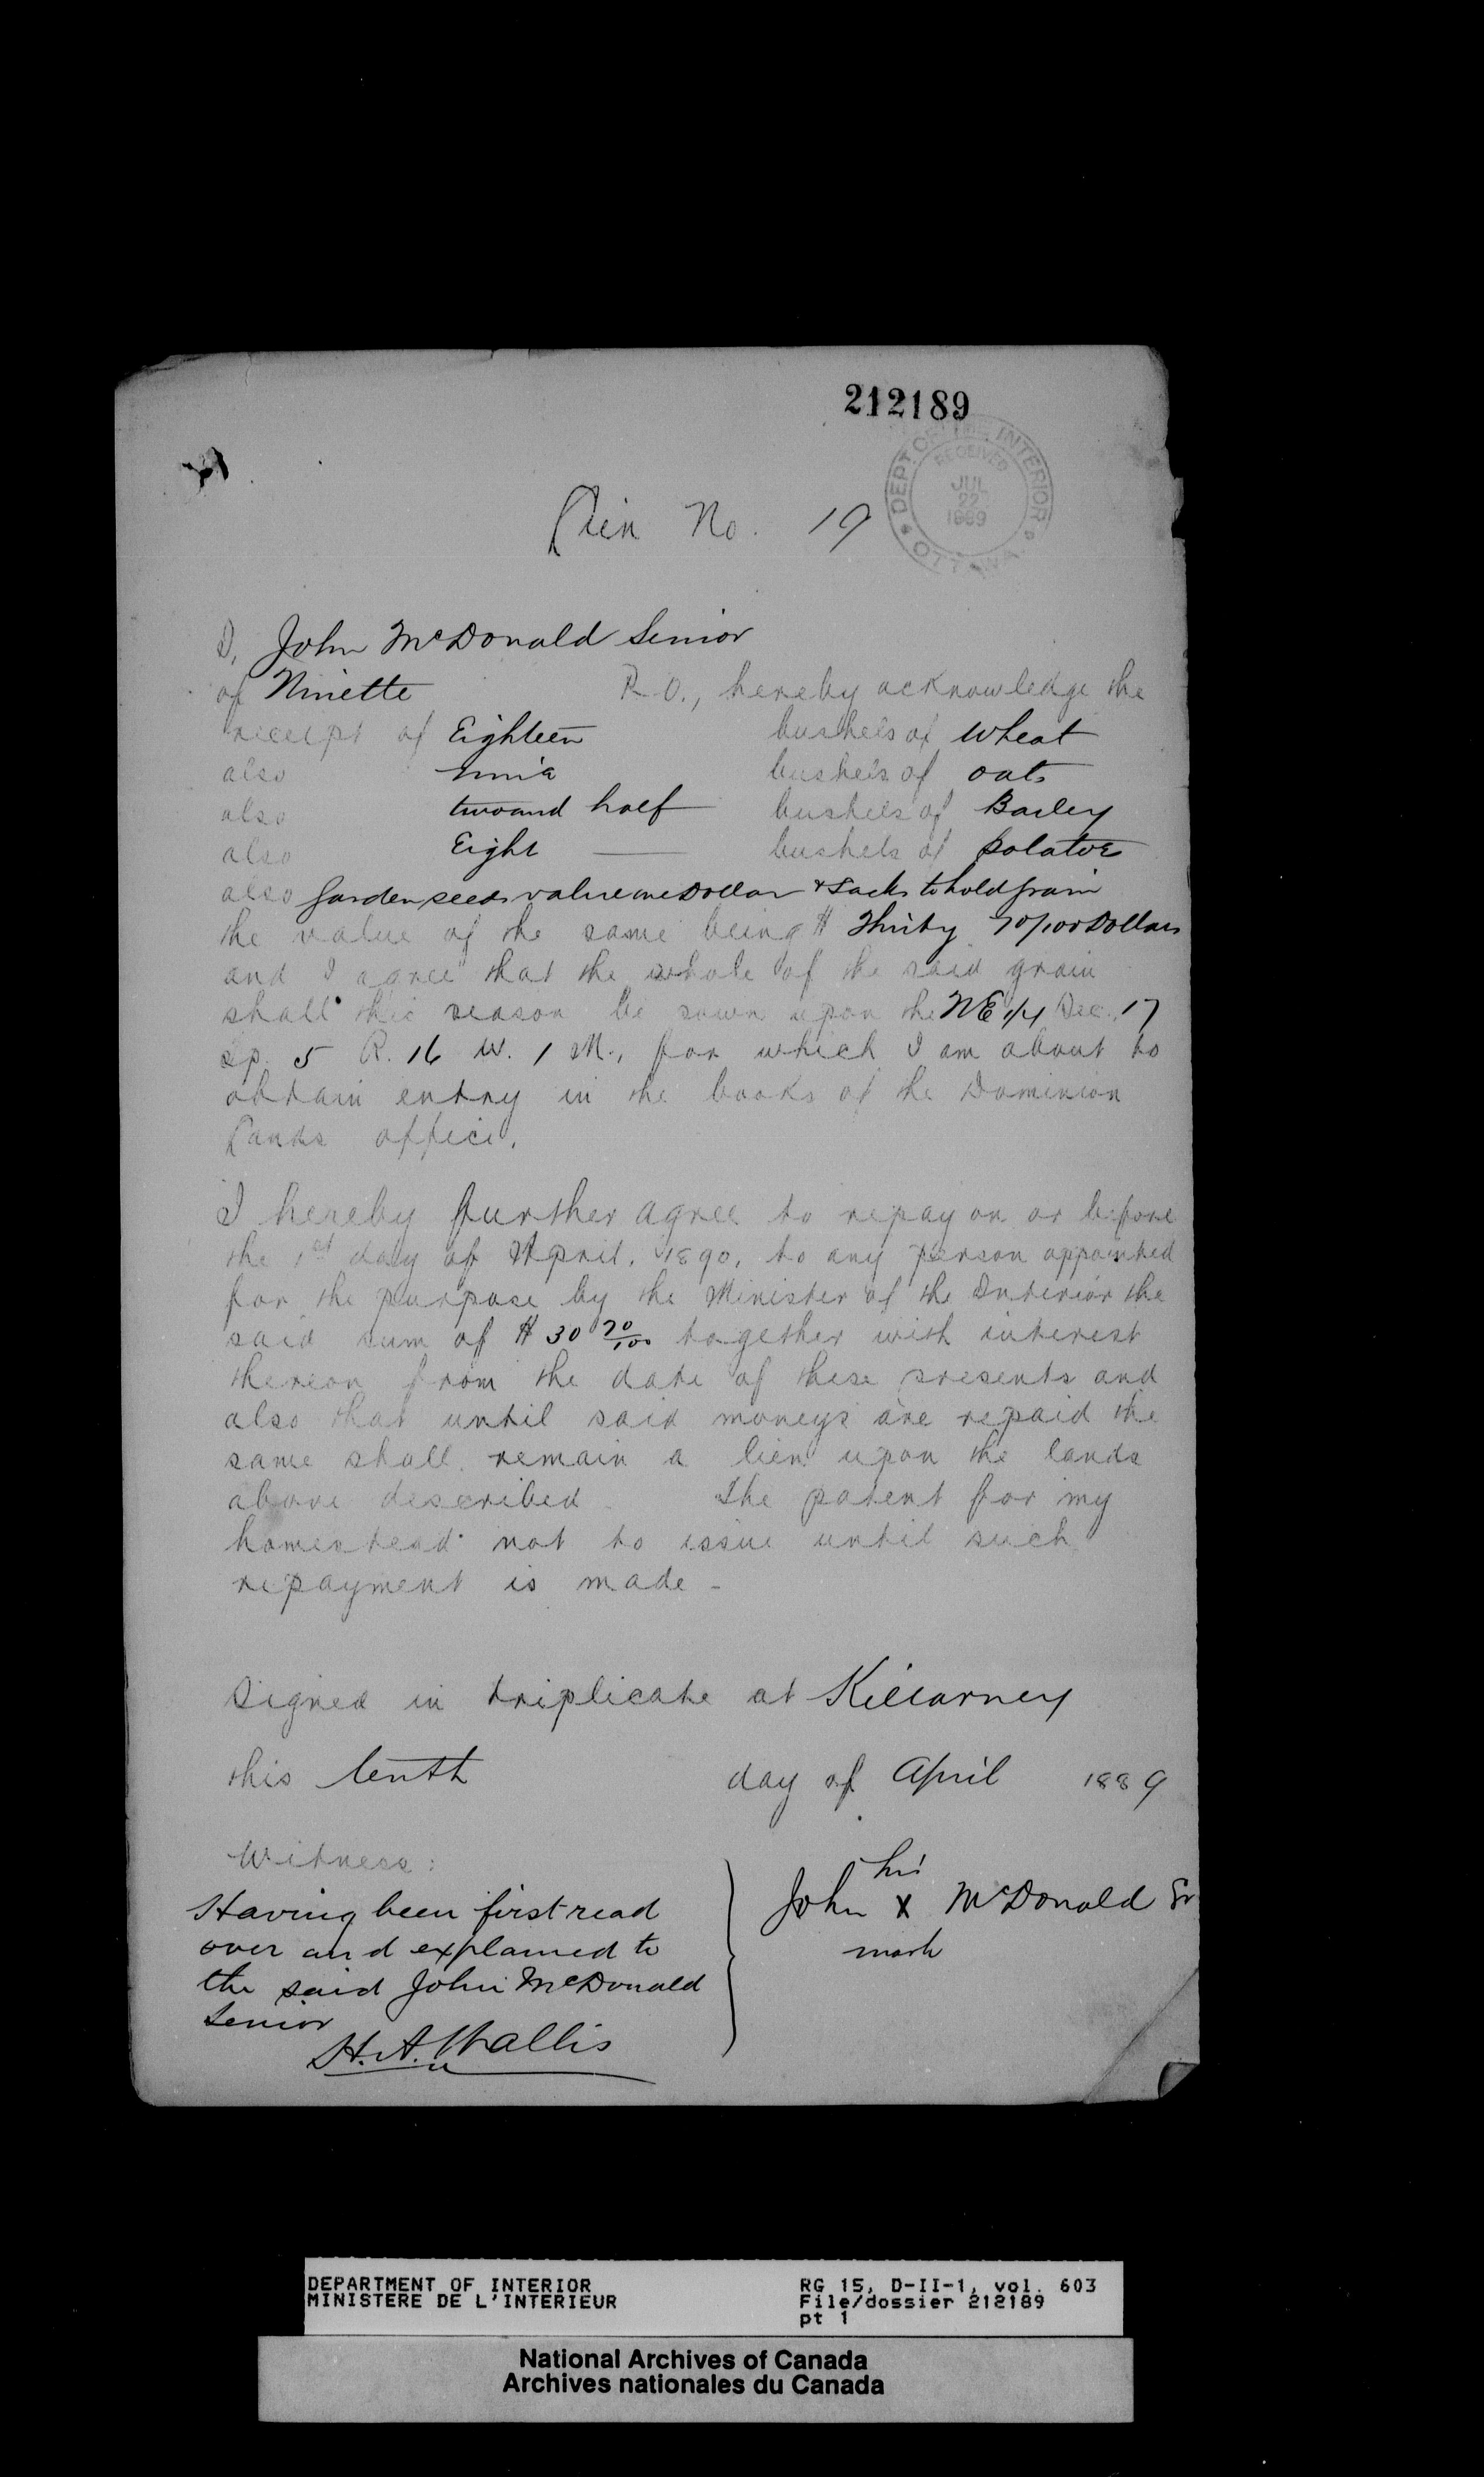 212189
DEPT. OF THE INTERIOR
RECEIVED
JUL
22
1889
OTTAWA
Lien No. 19
I, John McDonald Senior
of Ninette P.O., hereby acknowledge the
receipt of Eighteen bushels of Wheat
also nine bushels of oats
also two and half bushels of Barley
also Eight bushels of Potatoes
also Garden seeds value one Dollar & Sacks to hold grain
the value of the same being $ Thirty 70/100 Dollars
and I agree that the whole of the said grain
shall this season be sown upon the NE 1/4 Sec. 17
Tp. 5 R. 16 W. 1 M., for which I am about to
obtain entry in the books of the Dominion
Lands office.
I hereby further agree to repay on or before
the 1st day of April, 1890, to any person appointed
for the purpose by the Minister of the Interior the
said sum of $ 30 70/100 together with interest
thereon from the date of these presents and
also that until said moneys are repaid the
same shall remain a lien upon the lands
above described. The patent for my
homestead not to issue until such
repayment is made -
Signed in triplicate at Killarney
this tenth day of April 1889
Witness:
Having been first read
over and explained to
the said John McDonald
Senior
H. A. Wallis
his
John X McDonald Sr
mark
DEPARTMENT OF INTERIOR
MINISTERE DE L'INTERIEUR
RG 15, D-II-1, vol. 603
File/dossier 212189
pt 1
National Archives of Canada
Archives nationales du Canada